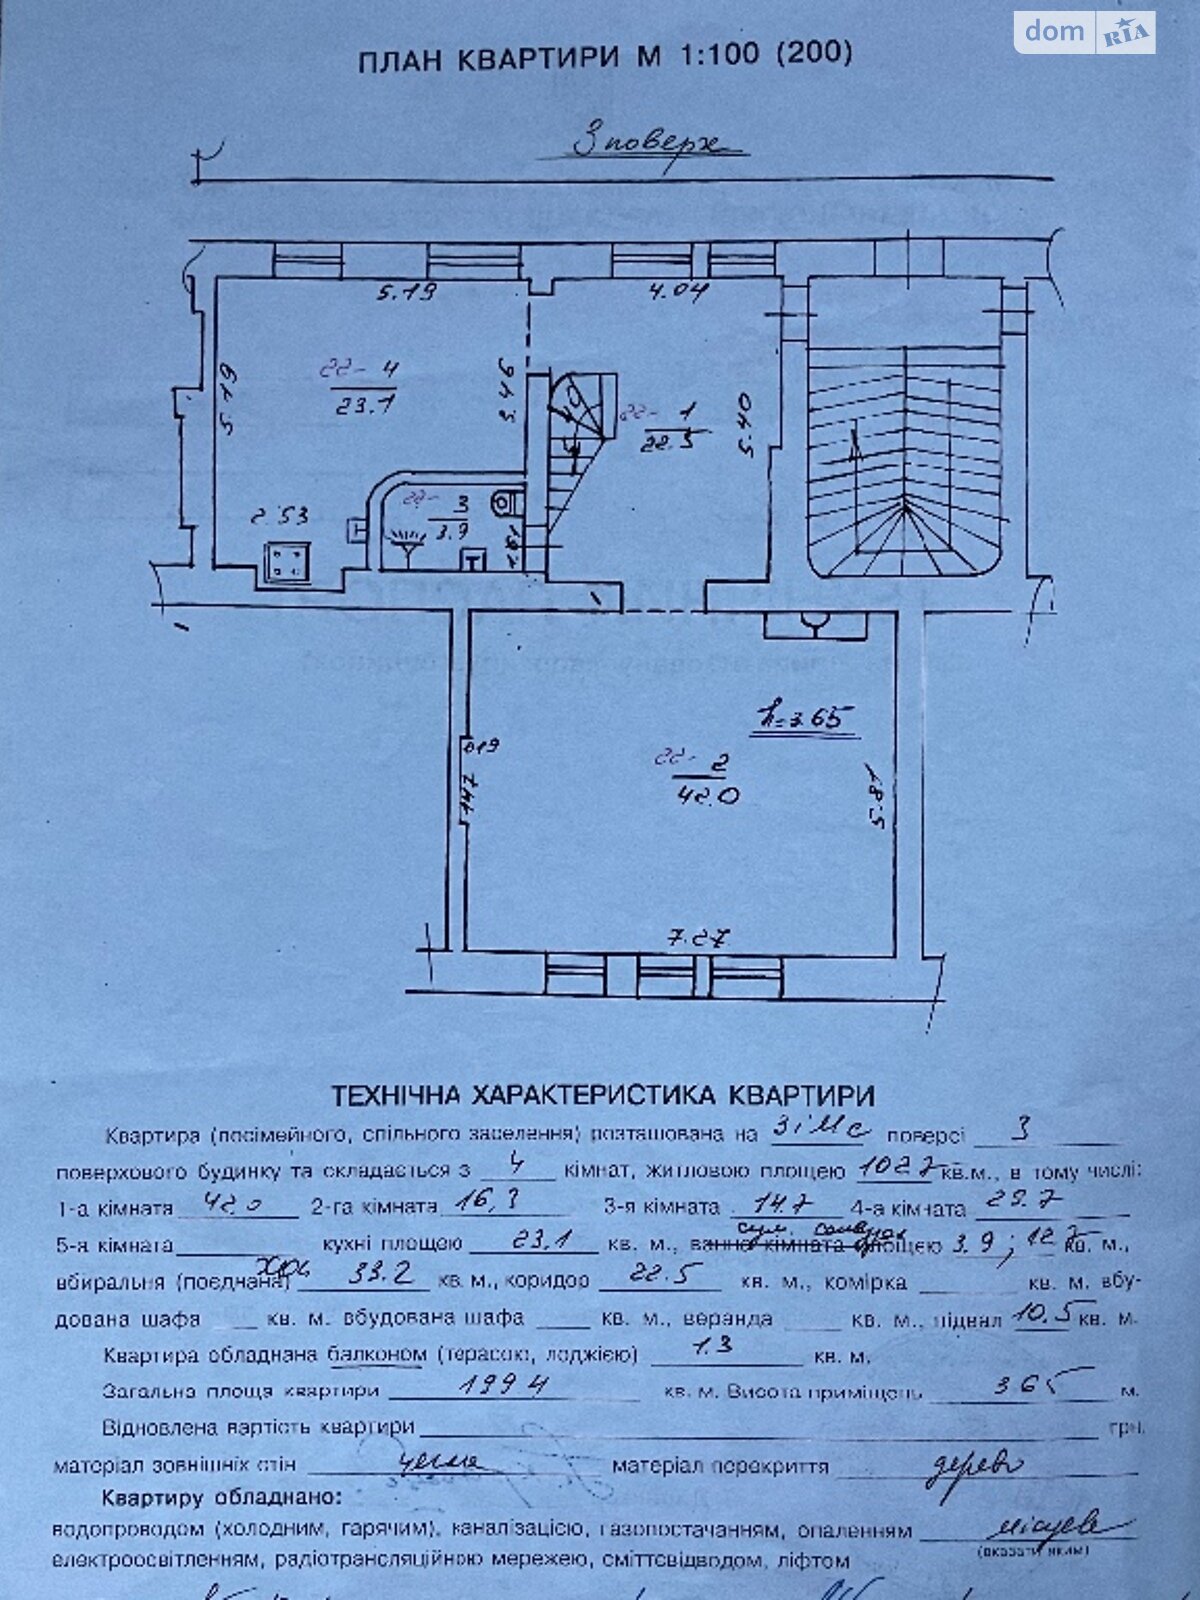 dom RIA
ПЛАН КВАРТИРИ М 1:100 (200)
3 поверх
5.19
4.04
22-4
23.1
5.19
3.46
22-1
22.5
5.40
2.53
22-3
3.9
1.61
h=3.65
0.19
1.47
22-2
42.0
5.81
7.27
ТЕХНІЧНА ХАРАКТЕРИСТИКА КВАРТИРИ
Квартира (посімейного, спільного заселення) розташована на 3 і Мс поверсі 3
поверхового будинку та складається з 4 кімнат, житловою площею 102.7 кв.м., в тому числі:
1-а кімната 42.0 2-га кімната 16,3 3-я кімната 14.7 4-а кімната 29.7
5-я кімната кухні площею 23.1 кв. м., ванна кімната площею 3.9; 12.7 кв. м.,
вбиральня (поєднана) 33.2 кв. м., коридор 22.5 кв. м., комірка кв. м. вбу-
дована шафа кв. м. вбудована шафа кв. м., веранда кв. м., підвал 10.5 кв. м.
Квартира обладнана балконом (терасою, лоджією) 1.3 кв. м.
Загальна площа квартири 199.4 кв. м. Висота приміщень 3.65 м.
Відновлена вартість квартири грн.
матеріал зовнішніх стін цегла матеріал перекриття дерево
Квартиру обладнано:
водопроводом (холодним, гарячим), каналізацією, газопостачанням, опаленням місцеве
(вказати яким)
електроосвітленням, радіотрансляційною мережею, сміттєвідводом, ліфтом